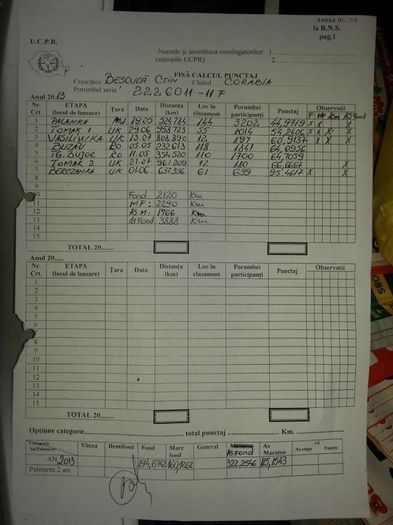 Anexa nr. 2/4
la R.N.S.
pag.1
U.C.P.R.
Numele și semnătura omologatorilor 1
(stampila UCPR) 2
FIȘĂ CALCUL PUNCTAJ
Crescător BESCUCĂ CTIN Clubul CORABIA
Porumbel seria 2226011-11 F
Anul 2013
Nr. Crt. ETAPA (locul de lansare) Țara Data Distanța (km) Loc în clasament Porumbei participanți Punctaj Observatii
1 PALANKA 19.05 524,784 144 3202 44,9719 X
2 TOMAK 1 UK 29.06 958,723 55 1014 54,2406 X X X
3 VASILIVKA UK 13.07 808,390 12 197 60,9137 X X X
4 BUZĂU RO 05.05 232,613 118 1841 64,0956
5 TG. BUJOR RO 11.05 354,520 110 1700 64,7059
6 TOMAK 2 UK 21.07 961,209 12 180 66,6667 X
7 BEREZANKA UK 01.06 637,336 61 639 95,4617 X
8
9
10 Fond 2120 Km
11 MF: 2290 Km
12 AS M: 1766 Km
13 AS Fond 3888 Km
14
15
TOTAL 20......
Anul 20.....
Nr. Crt. ETAPA (locul de lansare) Țara Data Distanța (km) Loc în clasament Porumbei participanți Punctaj Observatii
1
2
3
4
5
6
7
8
9
10
11
12
13
14
15
TOTAL 20......
Opțiune categorie total punctaj Km.
Categorie Viteza Demifond Fond Marc fond General AS Fond As Maraton AS Nr etape Puncte
AN 2013 322,2546 115,1543
Palmares 2 ani